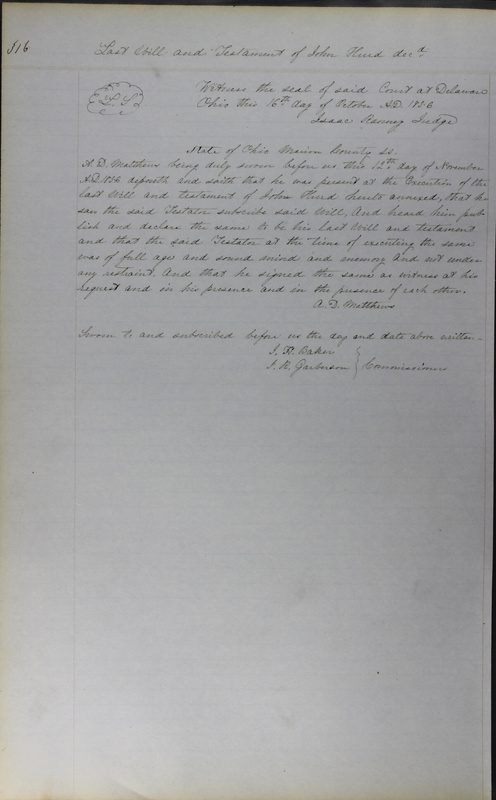 816
Last Will and Testament of John Hurd decd.
L.S.
Witness the seal of said Court at Delaware
Ohio this 16th day of October A.D. 1856
Isaac Ranney Judge
State of Ohio Marion County SS.
A. D. Matthews being duly sworn before us this 12th day of November
A.D. 1856 deposeth and saith that he was present at the Execution of the
last Will and testament of John Hurd hereto annexed, that he
saw the said Testator subscribe said Will, And heard him pub-
lish and declare the same to be his last Will and testament
and that the said Testator at the time of executing the same
was of full age and sound mind and memory And not under
any restraint. And that he signed the same as witness at his
request and in his presence and in the presence of each other.
A. D. Matthews
Sworn to and subscribed before us the day and date above written
J. R. Baker
J. R. Garberson } Commissioners